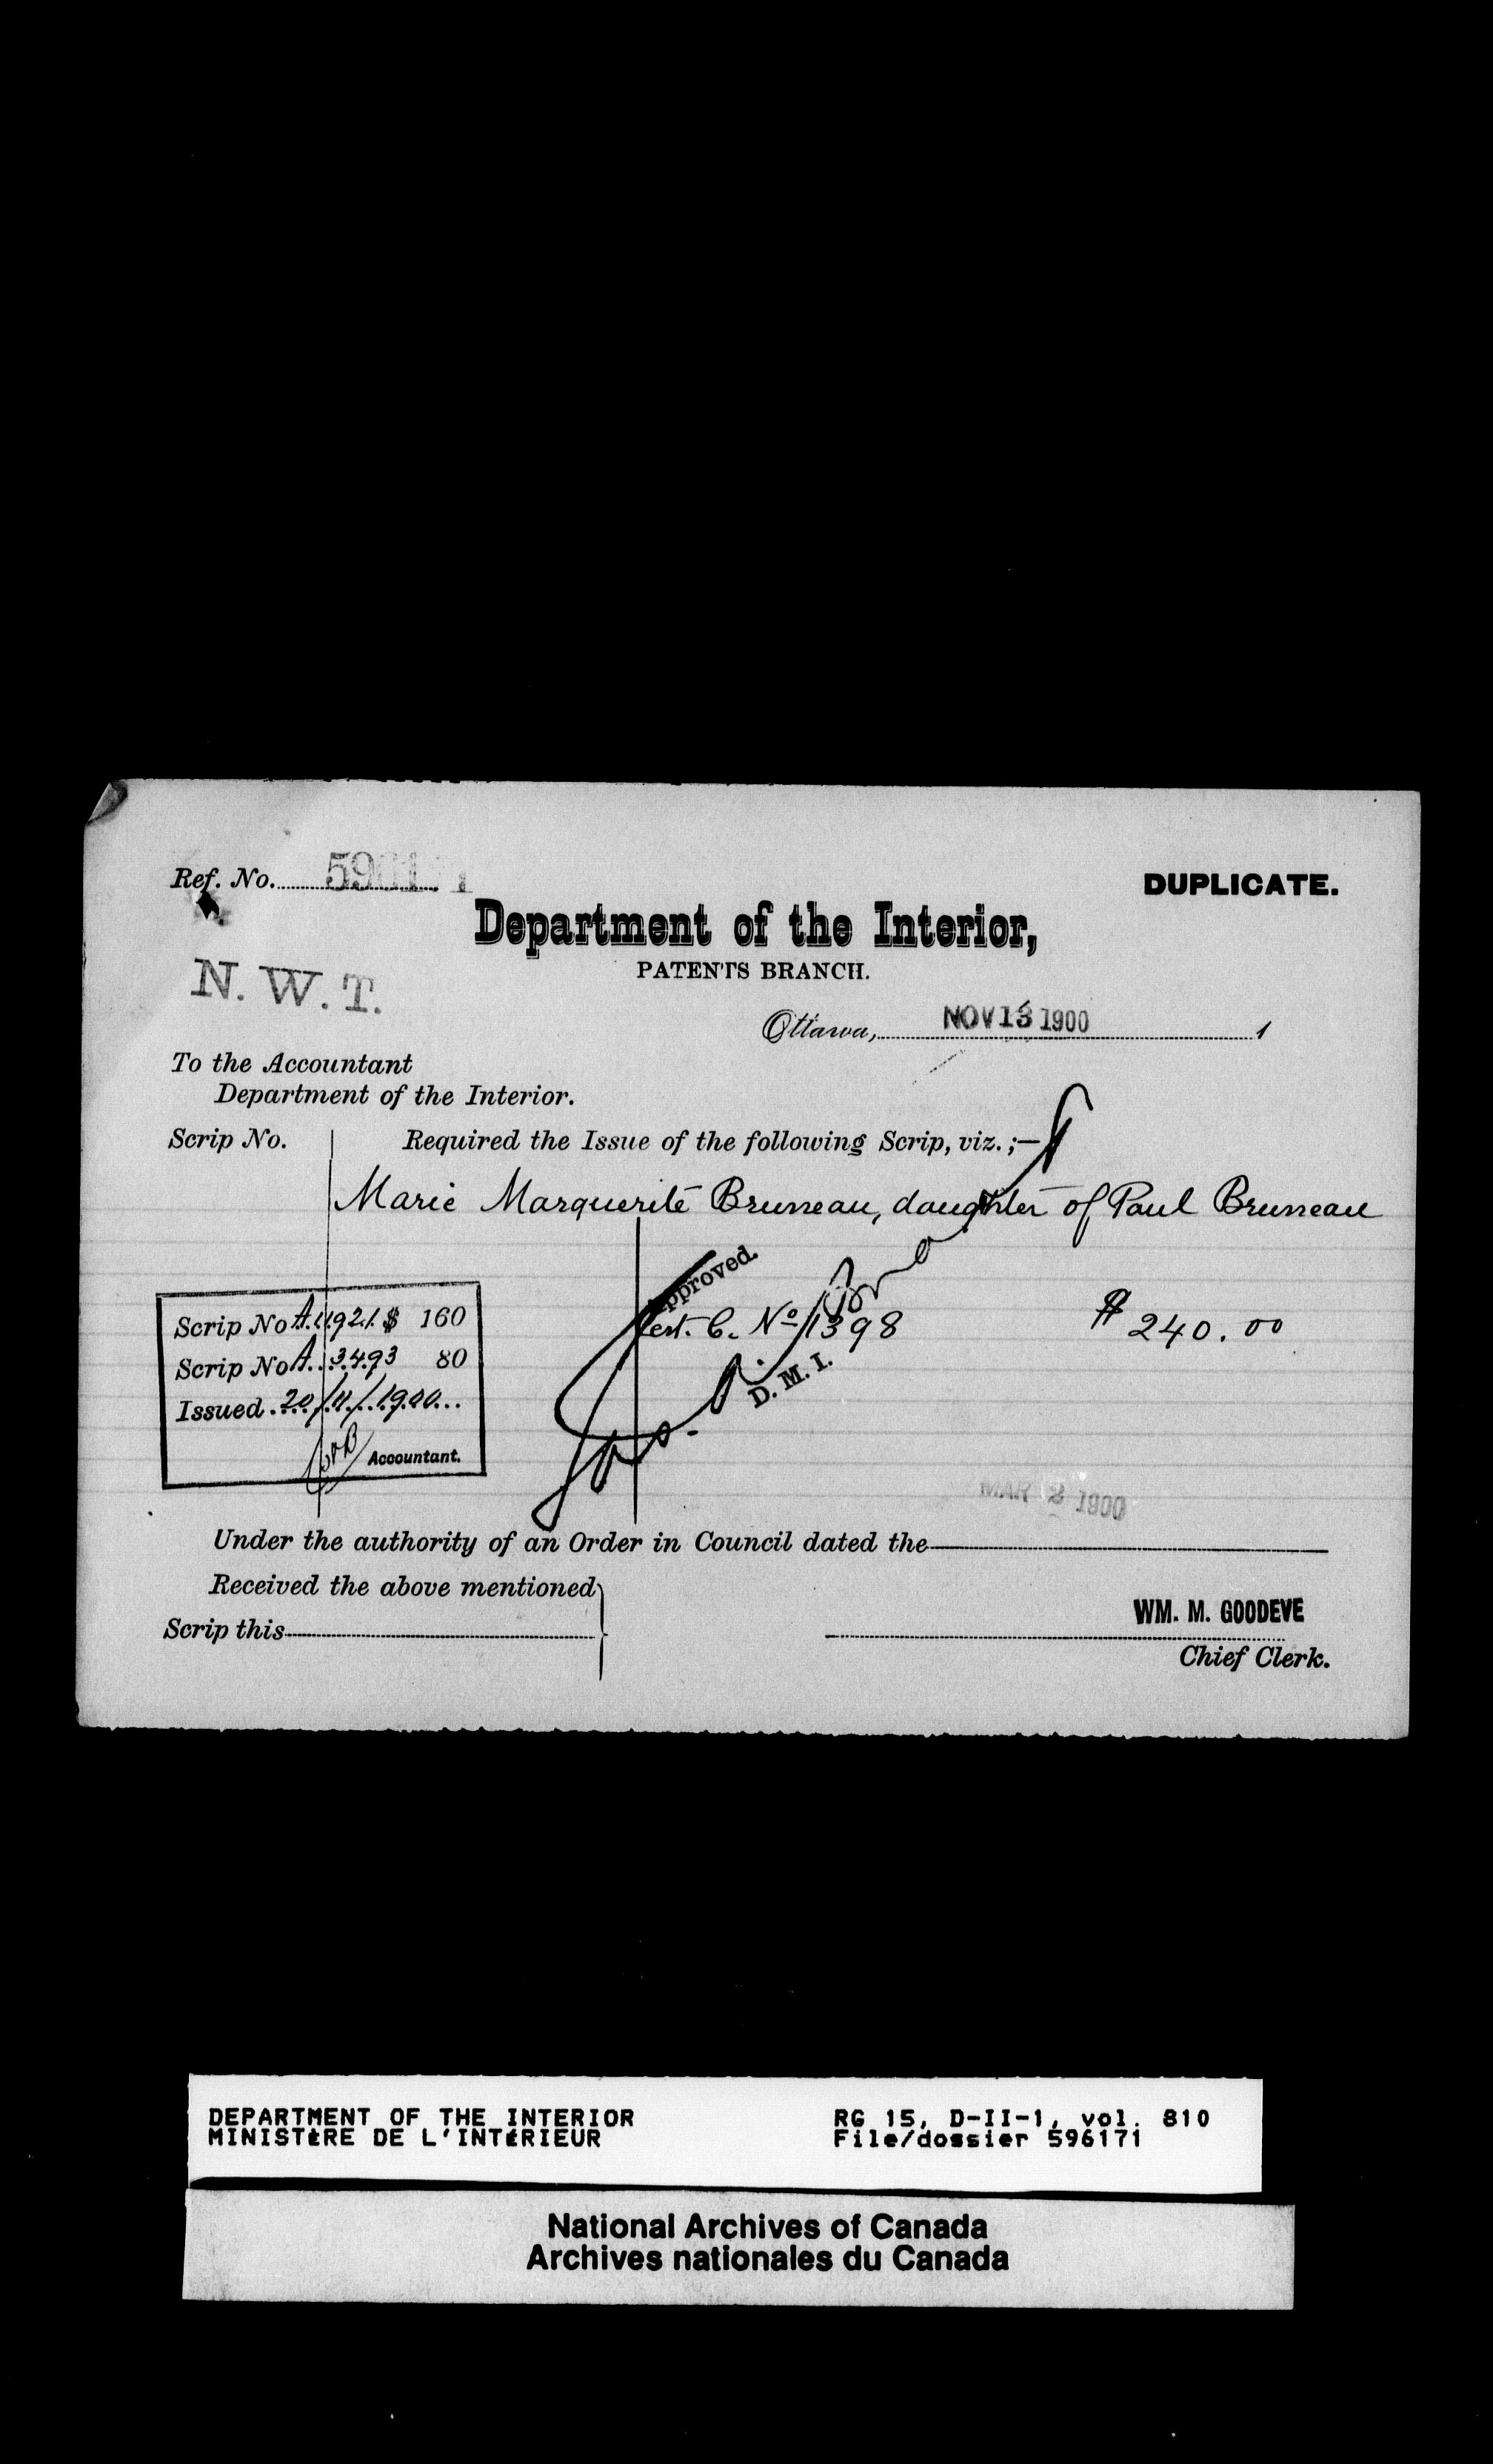 Ref. No. 596171
DUPLICATE.
Department of the Interior,
PATENTS BRANCH.
N. W. T.
Ottawa, NOV 13 1900 1
To the Accountant
Department of the Interior.
Scrip No. Required the Issue of the following Scrip, viz.;—
Marie Marguerite Bruneau, daughter of Paul Bruneau
Approved.
Scrip No A. 11921. $ 160
Cert. C. No 1398 $ 240.00
Scrip No A. 3493 80
D. M. I.
Issued. 20/11/1900
Accountant.
MAR 2 1900
Under the authority of an Order in Council dated the
Received the above mentioned
Scrip this
WM. M. GOODEVE
Chief Clerk.
DEPARTMENT OF THE INTERIOR RG 15, D-II-1, vol. 810
MINISTÈRE DE L'INTÉRIEUR File/dossier 596171
National Archives of Canada
Archives nationales du Canada